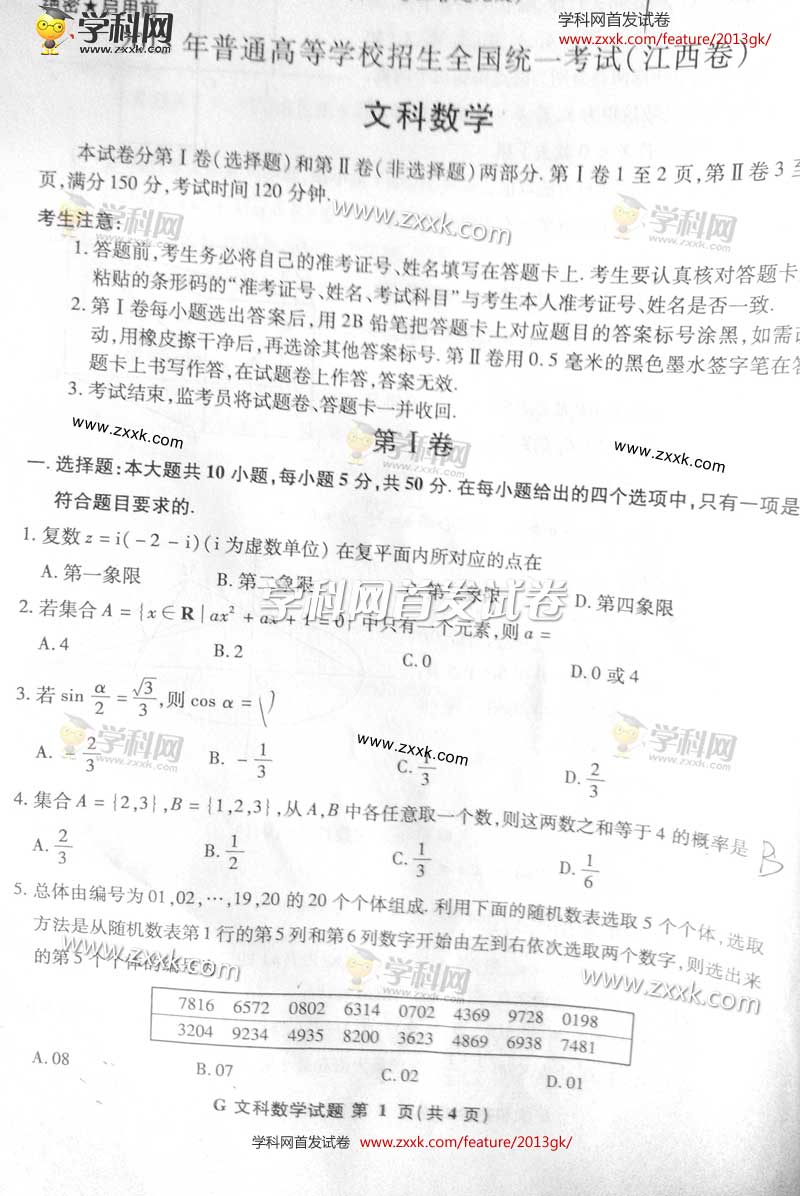 绝密★启用前
学科网首发试卷
www.zxxk.com/feature/2013gk/
年普通高等学校招生全国统一考试(江西卷)
文科数学
本试卷分第Ⅰ卷(选择题)和第Ⅱ卷(非选择题)两部分.第Ⅰ卷1至2页,第Ⅱ卷3至
页,满分150分,考试时间120分钟.
www.zxxk.com
考生注意:
学科网
zxxk.com
学科网
zxxk.com
1.答题前,考生务必将自己的准考证号、姓名填写在答题卡上.考生要认真核对答题卡
粘贴的条形码的“准考证号、姓名、考试科目”与考生本人准考证号、姓名是否一致.
2.第Ⅰ卷每小题选出答案后,用2B铅笔把答题卡上对应题目的答案标号涂黑,如需
动,用橡皮擦干净后,再选涂其他答案标号.第Ⅱ卷用0.5毫米的黑色墨水签字笔在答
题卡上书写作答,在试题卷上作答,答案无效.
3.考试结束,监考员将试题卷、答题卡一并收回.
www.zxxk.com
学科网
zxxk.com
www.zxxk.com
第Ⅰ卷
一.选择题:本大题共10小题,每小题5分,共50分.在每小题给出的四个选项中,只有一项是
符合题目要求的.
1.复数z=i(-2-i)(i为虚数单位)在复平面内所对应的点在
A.第一象限 B.第二象限 C.第三象限 D.第四象限
学科网首发试卷
2.若集合A={x∈R|ax²+ax+1=0}中只有一个元素,则a=
A.4 B.2 C.0 D.0或4
3.若sin α/2=√3/3,则cos α=
学科网
zxxk.com
www.zxxk.com
学科网
zxxk.com
A.-2/3 B.-1/3 C.1/3 D.2/3
4.集合A={2,3},B={1,2,3},从A,B中各任意取一个数,则这两数之和等于4的概率是 B
A.2/3 B.1/2 C.1/3 D.1/6
5.总体由编号为01,02,…,19,20的20个个体组成.利用下面的随机数表选取5个个体,选取
方法是从随机数表第1行的第5列和第6列数字开始由左到右依次选取两个数字,则选出来
的第5个个体的编号为
www.zxxk.com
学科网
zxxk.com
www.zxxk.com
7816 6572 0802 6314 0702 4369 9728 0198
3204 9234 4935 8200 3623 4869 6938 7481
A.08 B.07 C.02 D.01
G 文科数学试题 第 1 页(共4页)
学科网首发试卷 www.zxxk.com/feature/2013gk/